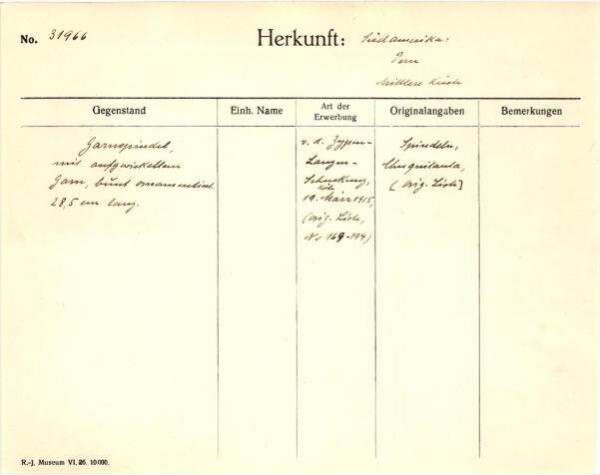 No. 31966
Herkunft: Südamerika:
Peru
Mittlere Küste
Gegenstand
Einh. Name
Art der Erwerbung
Originalangaben
Bemerkungen
Garnspindel,
mit aufgewickeltem
Garn, bunt ornamentiert
28,5 cm lang.
v. d. Zypen-
Langen-
Schenkung,
19. März 1915,
(Orig. Liste,
No 169-194)
Spindeln,
(Orig. Liste)
R.-J. Museum VI. 26. 10000.